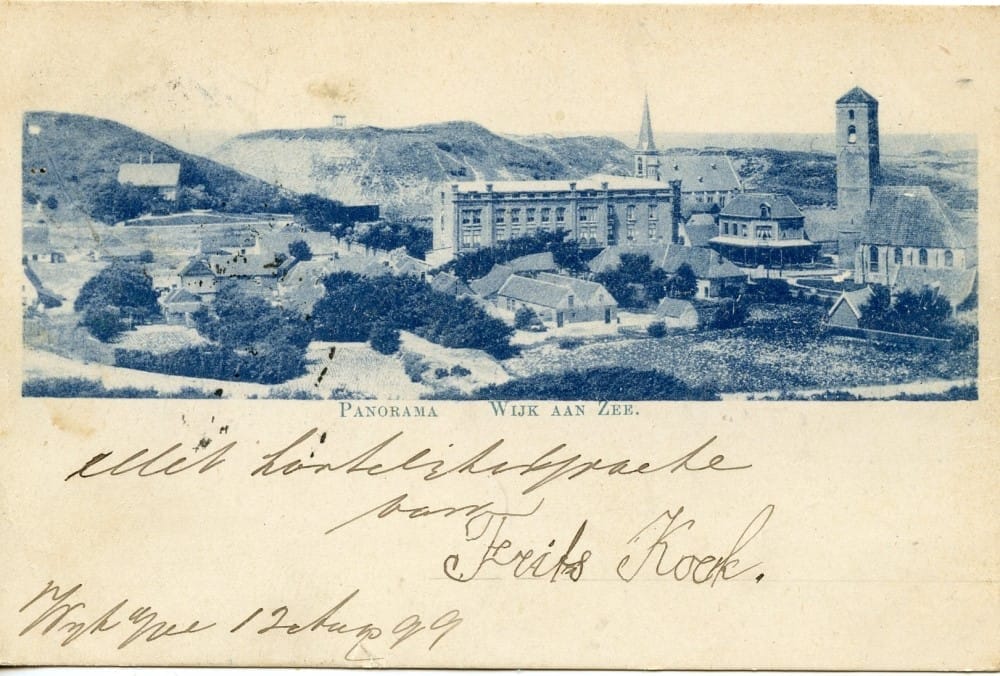 PANORAMA WIJK AAN ZEE.
Met hartelijke groete
van
Frits Koek.
Wijk a/Zee 12 Aug 99